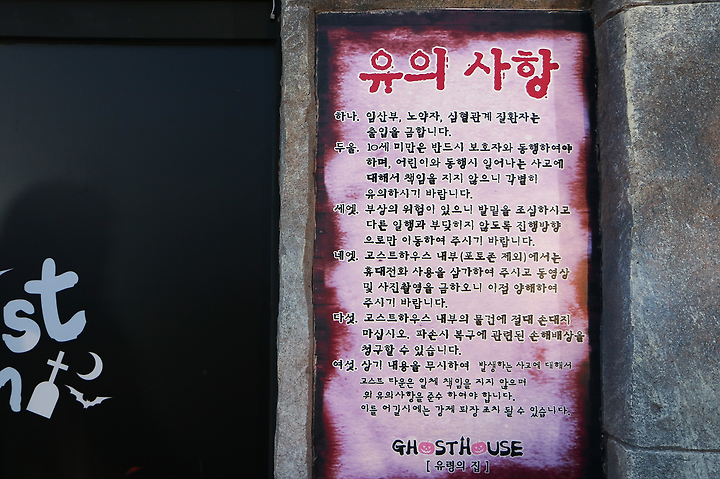 유의 사항
하나. 임산부, 노약자, 심혈관계 질환자는
출입을 금합니다.
두울. 10세 미만은 반드시 보호자와 동행하여야
하며, 어린이와 동행시 일어나는 사고에
대해서 책임을 지지 않으니 각별히
유의하시기 바랍니다.
세엣. 부상의 위험이 있으니 발밑을 조심하시고
다른 일행과 부딪히지 않도록 진행방향
으로만 이동하여 주시기 바랍니다.
네엣. 고스트하우스 내부(포토존 제외)에서는
휴대전화 사용을 삼가하여 주시고 동영상
및 사진촬영을 금하오니 이점 양해하여
주시기 바랍니다.
다섯. 고스트하우스 내부의 물건에 절대 손대지
마십시오. 파손시 복구에 관련된 손해배상을
청구할 수 있습니다.
여섯. 상기 내용을 무시하여 발생하는 사고에 대해서
고스트 타운은 일체 책임을 지지 않으며
위 유의사항을 준수 하여야 합니다.
이를 어길시에는 강제 퇴장 조치 될 수 있습니다.
GHOSTHOUSE
[ 유령의 집 ]
st
n